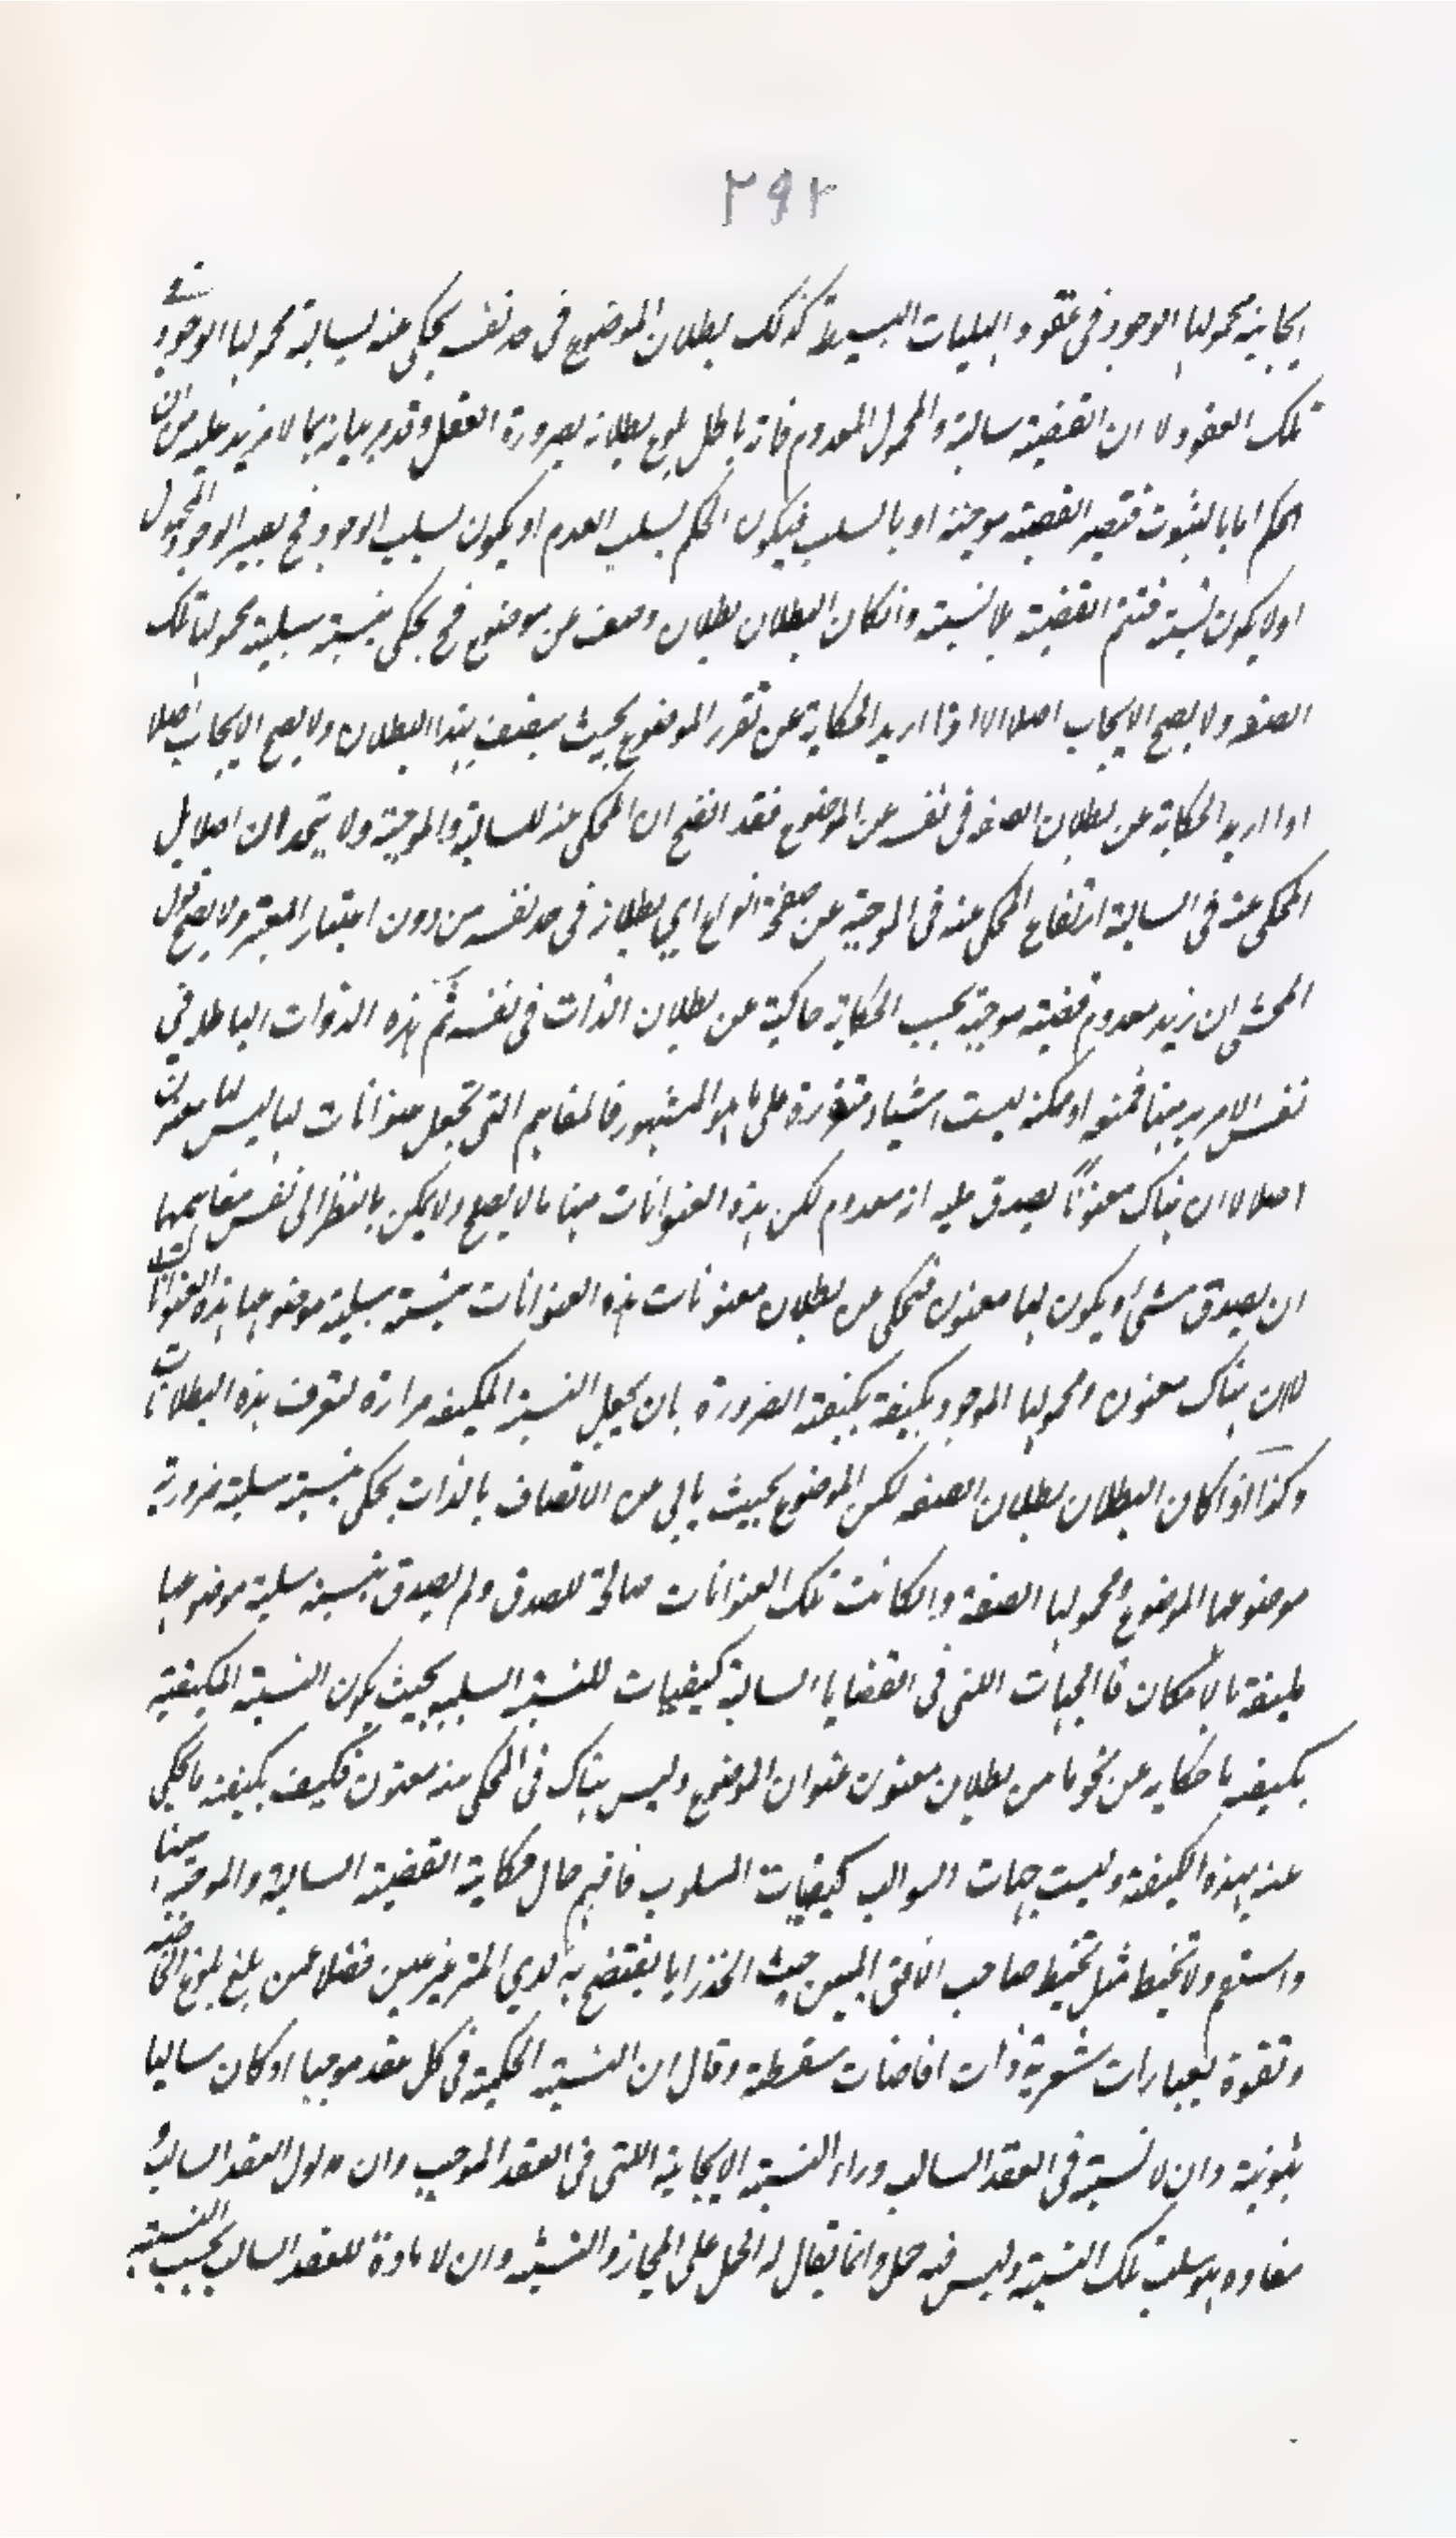 ٢٩٢
ايجابية محمولها الوجود في عقود الهليات البسيطة كذلك بطلان الموضوع في حد نفسه يحكى عنه بسالبة محمولها الوجود في
تلك العقود لا ان القضية سالبة والمحمول المعدوم فانه باطل يلوح بطلانه بضرورة العقل وقد مر بيانه بما لا مزيد عليه من ان
الحكم اما بالثبوت فتصير القضية موجبة او بالسلب فيكون الحكم بسلب العدم او يكون بسلب الوجود فح يصير الوجود المحمول
او لا يكون نسبة فتتم القضية بلا نسبة وانكان البطلان بطلان وصف عن موضوع فح يحكى بنسبة سلبية محمولها تلك
الصفة ولا يصح الايجاب اصلا الا اذا اريد الحكاية عن تقرر الموضوع بحيث يتصف بهذا البطلان ولا يصح الايجاب اصلا
اذا اريد الحكاية عن بطلان الصفة في نفسه عن الموضوع فقد اتضح ان المحكى عنه للسالبة والموجبة ولا يتحدان اصلا بل
المحكى عنه في السالبة ارتفاع المحكى عنه في الموجبة عن صفحة الواقع اي بطلانه في حد نفسه من دون اعتبار المعتبر ولا يصح قول
المحشى ان زيد معدوم قضية موجبة بحسب الحكاية حاكية عن بطلان الذات في نفسه ثم هذه الذوات الباطلة في
نفس الامر ممتنعة او ممكنة ليست اشياء متقررة على ما هو المشهور فالمفاهيم التي تجعل عنوانات لها ليس لها معنون
اصلا لا ان هناك معنونا يصدق عليه انه معدوم لكن هذه العنوانات منها ما لا يصلح ولا يمكن بالنظر الى نفس مفاهيمها
ان يصدق شيء او يكون لها معنون فتحكى عن بطلان معنونات هذه العنوانات بنسبة سلبية موضوعها هذه العنوانات
لا ان هناك معنون ومحمولها الموجود مكيفة بكيفية الضرورة بان يجعل النسبة المكيفة مرآة لتعرف هذه البطلانات
وكذا اذا كان البطلان بطلان الصفة لكن الموضوع بحيث يابى عن الاتصاف بالذات يحكى بنسبة سلبية ضرورية
موضوعها الموضوع ومحمولها الصفة وانكانت تلك العنوانات صالحة للصدق ولم يصدق بنسبة سلبية موضوعها
مكيفة بالامكان فالجهات اللتى في القضايا السالبة كيفيات للنسبة السلبية بحيث يكون النسبة المكيفة
بكيفية ما حكاية عن نحو ما من بطلان معنون عنوان الموضوع وليس هناك في المحكى عنه معنون فكيف بكيفية ما يحكى
عنه بهذه الكيفية وليست جهات السوالب كيفيات السلوب فافهم حال حكاية القضية السالبة والموجبة منها
واستقم ولا تخبط مثل تخبط صاحب الافق المبين حيث فضلا عمن بلغ بلوغ
وتفوه بعبارات شعرية ذات افاضات سفسطة وقال ان النسبة الحكمية في كل عقد موجبا او كان سالبا
ثبوتية وان لا نسبة في العقد السالب وراء النسبة الايجابية اللتى في العقد الموجب وان مدلول العقد السالب و
مفاده هو سلب تلك النسبة وليس فيه حمل وانما يقال له الحمل على المجاز والتشبيه وان لا مادة للعقد السالب بحسب النسبة